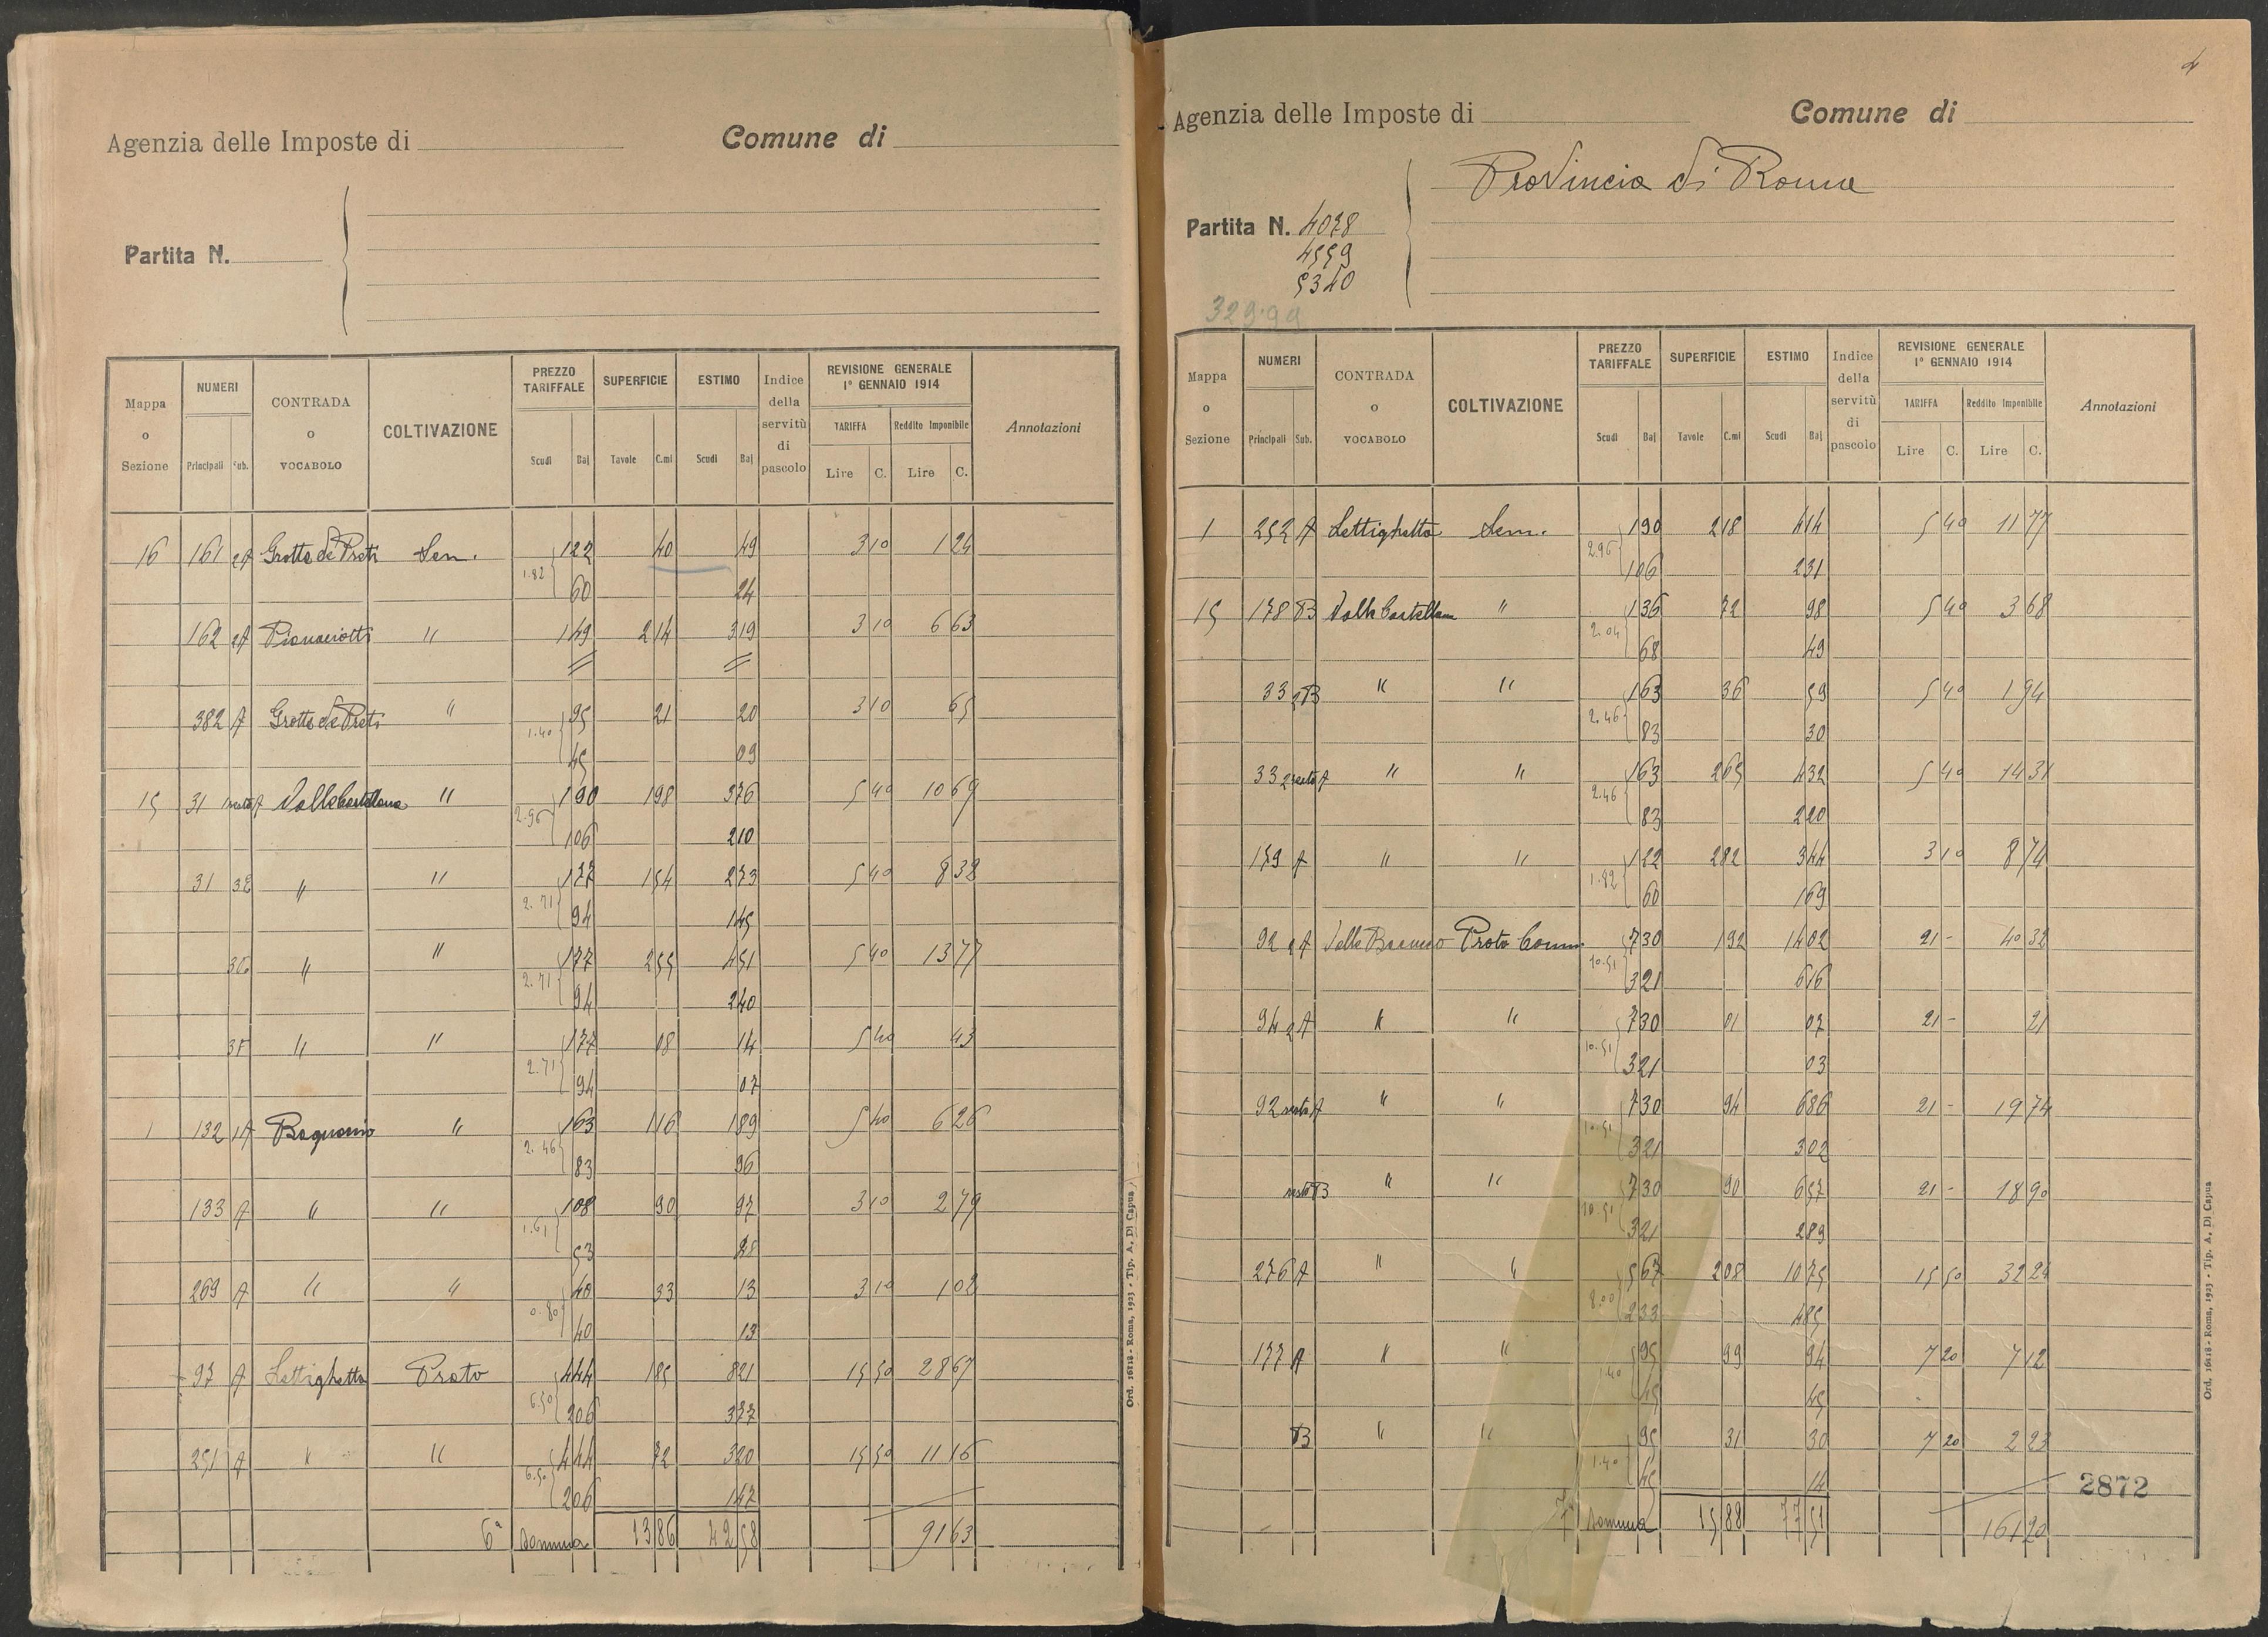 Agenzia delle Imposte di
Comune di
Partita N.
Mappa o Sezione NUMERI CONTRADA o VOCABOLO COLTIVAZIONE PREZZO TARIFFALE SUPERFICIE ESTIMO Indice della servitù di pascolo REVISIONE GENERALE 1° GENNAIO 1914 Annotazioni
TARIFFA Reddito Imponibile
Principali Sub. Scudi Baj Tavole C.mi Scudi Baj Lire C. Lire C.
16 161 2A Grotte de Preti Sem. 1 22 40 49 3 10 1 24
1.82 60 24
162 2A 〃 1 49 2 14 3 19 3 10 6 63
382 A Grotte de Preti 〃 95 21 20 3 10 65
1.40 45 09
15 31 1 resto A Valle Castellana 〃 1 90 1 98 3 76 5 40 10 69
2.96 1 06 2 10
31 〃 〃 1 77 1 54 2 73 5 40 8 32
2.71 94 1 45
〃 〃 1 77 2 55 4 51 5 40 13 77
2.71 94 2 40
〃 〃 1 77 08 14 5 40 43
2.71 94 07
1 132 1A 〃 1 63 1 16 1 89 5 40 6 26
2.46 83 96
133 A 〃 〃 1 08 90 97 3 10 2 79
1.61 53 48
269 A 〃 〃 40 33 13 3 10 1 02
0.80 40 13
97 A Lettighetta Prato 4 44 1 85 8 21 15 50 28 67
6.50 2 06 3 77
251 A 〃 〃 4 44 72 3 20 15 50 11 16
6.50 2 06 1 47
6ª Somma 13 86 42 58 91 63
Ord. 16118 - Roma, 1923 - Tip. A. Di Capua
Agenzia delle Imposte di
Comune di
Provincia di Roma
Partita N. 4078
4559
5340
329.99
Mappa o Sezione NUMERI CONTRADA o VOCABOLO COLTIVAZIONE PREZZO TARIFFALE SUPERFICIE ESTIMO Indice della servitù di pascolo REVISIONE GENERALE 1° GENNAIO 1914 Annotazioni
TARIFFA Reddito Imponibile
Principali Sub. Scudi Baj Tavole C.mi Scudi Baj Lire C. Lire C.
1 252 A Lettighetta Sem. 1 90 2 18 4 14 5 40 11 77
2.96 1 06 2 31
15 178 B Valle Castellana 〃 1 36 72 98 5 40 3 68
2.04 68 49
33 2B 〃 〃 1 63 36 59 5 40 1 94
2.46 83 30
33 2 resto A 〃 〃 1 63 2 65 4 32 5 40 14 31
2.46 83 2 20
179 A 〃 〃 1 22 2 82 3 44 3 10 8 74
1.82 60 1 69
92 1A Prato 7 30 1 92 14 02 21 - 40 32
10.51 3 21 6 16
94 2A 〃 〃 7 30 01 07 21 - 21
10.51 3 21 03
92 resto A 〃 〃 7 30 94 6 86 21 - 19 74
10.51 3 21 3 02
resto B 〃 〃 7 30 90 6 57 21 - 18 90
10.51 3 21 2 89
276 A 〃 〃 5 67 2 08 10 75 15 50 32 24
8.00 2 33 4 85
177 A 〃 〃 95 99 94 7 20 7 12
1.40 45 45
B 〃 〃 95 31 30 7 20 2 23
1.40 45 14
2872
7ª Somma 15 88 77 51 161 20
Ord. 16118 - Roma, 1923 - Tip. A. Di Capua